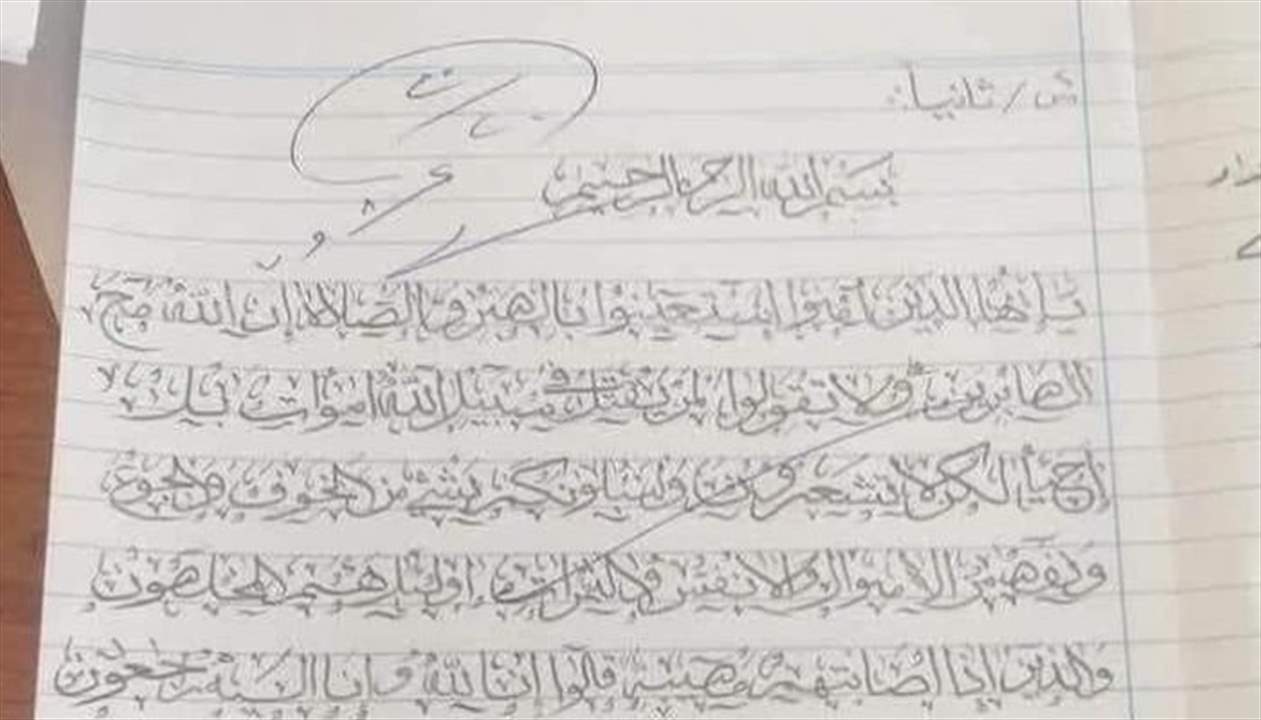 س/ ثانياً:
بسم الله الرحمن الرحيم
يا ايها الذين آمنوا استعينوا بالصبر والصلاة ان الله مع
الصابرين ولا تقولوا لمن يقتل في سبيل الله اموات بل
أحياء لكن لا تشعرون ولنبلونكم بشئ من الخوف والجوع
ونقص من الاموال والانفس والثمرات
والذين اذا اصابتهم مصيبة قالوا انا لله وانا اليه راجعون